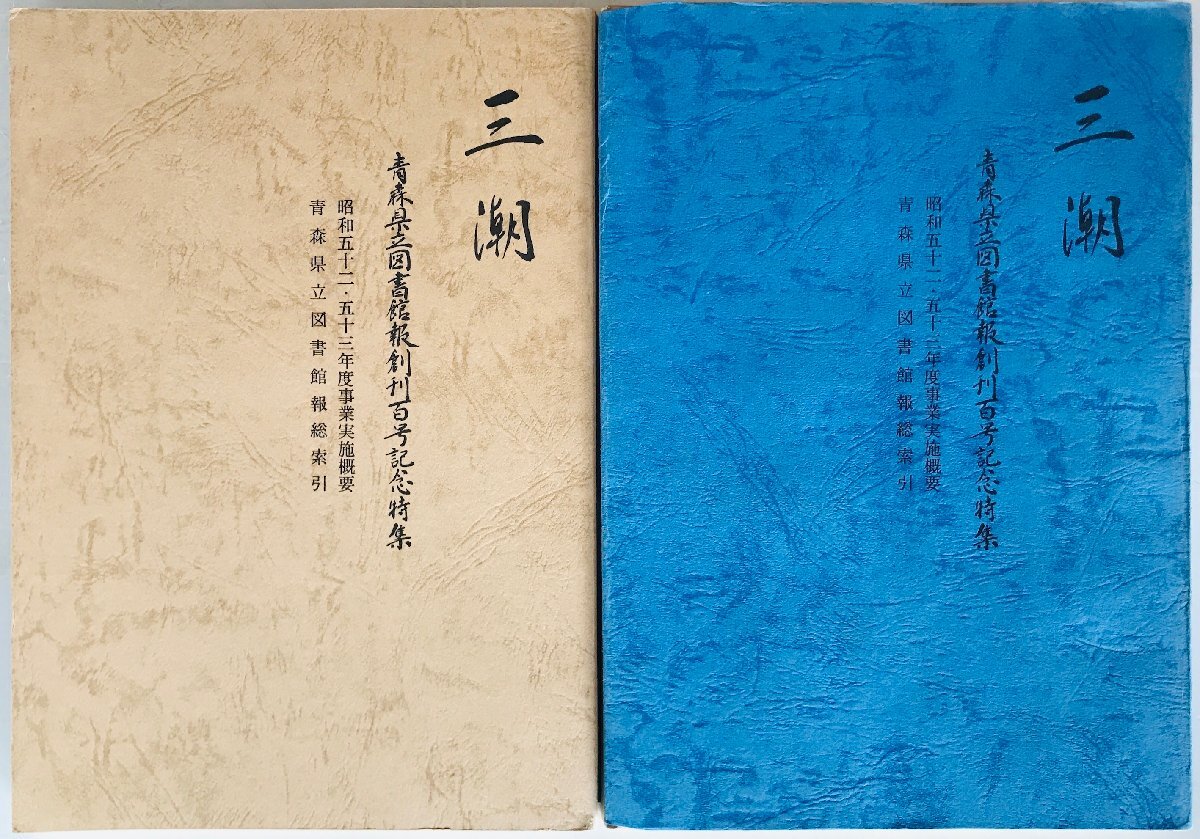 三潮
青森県立図書館報創刊百号記念特集
昭和五十二・五十三年度事業実施概要
青森県立図書館報総索引
三潮
青森県立図書館報創刊百号記念特集
昭和五十二・五十三年度事業実施概要
青森県立図書館報総索引